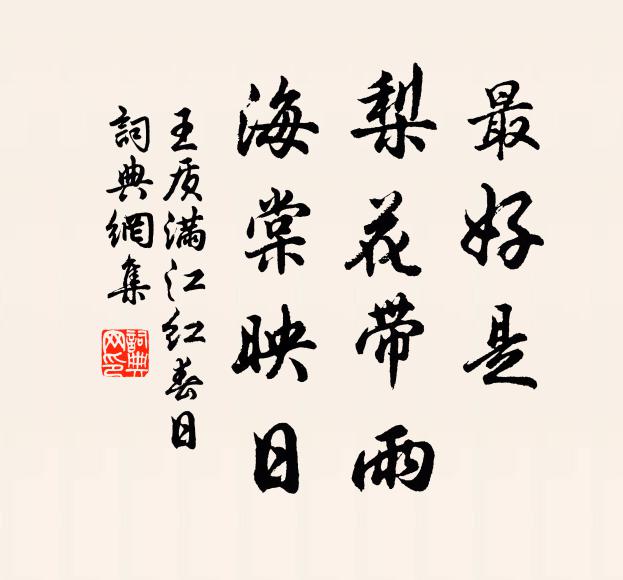 最好是
梨花带雨
海棠映日
王质满江红春日
詞典網集
詞典
网印